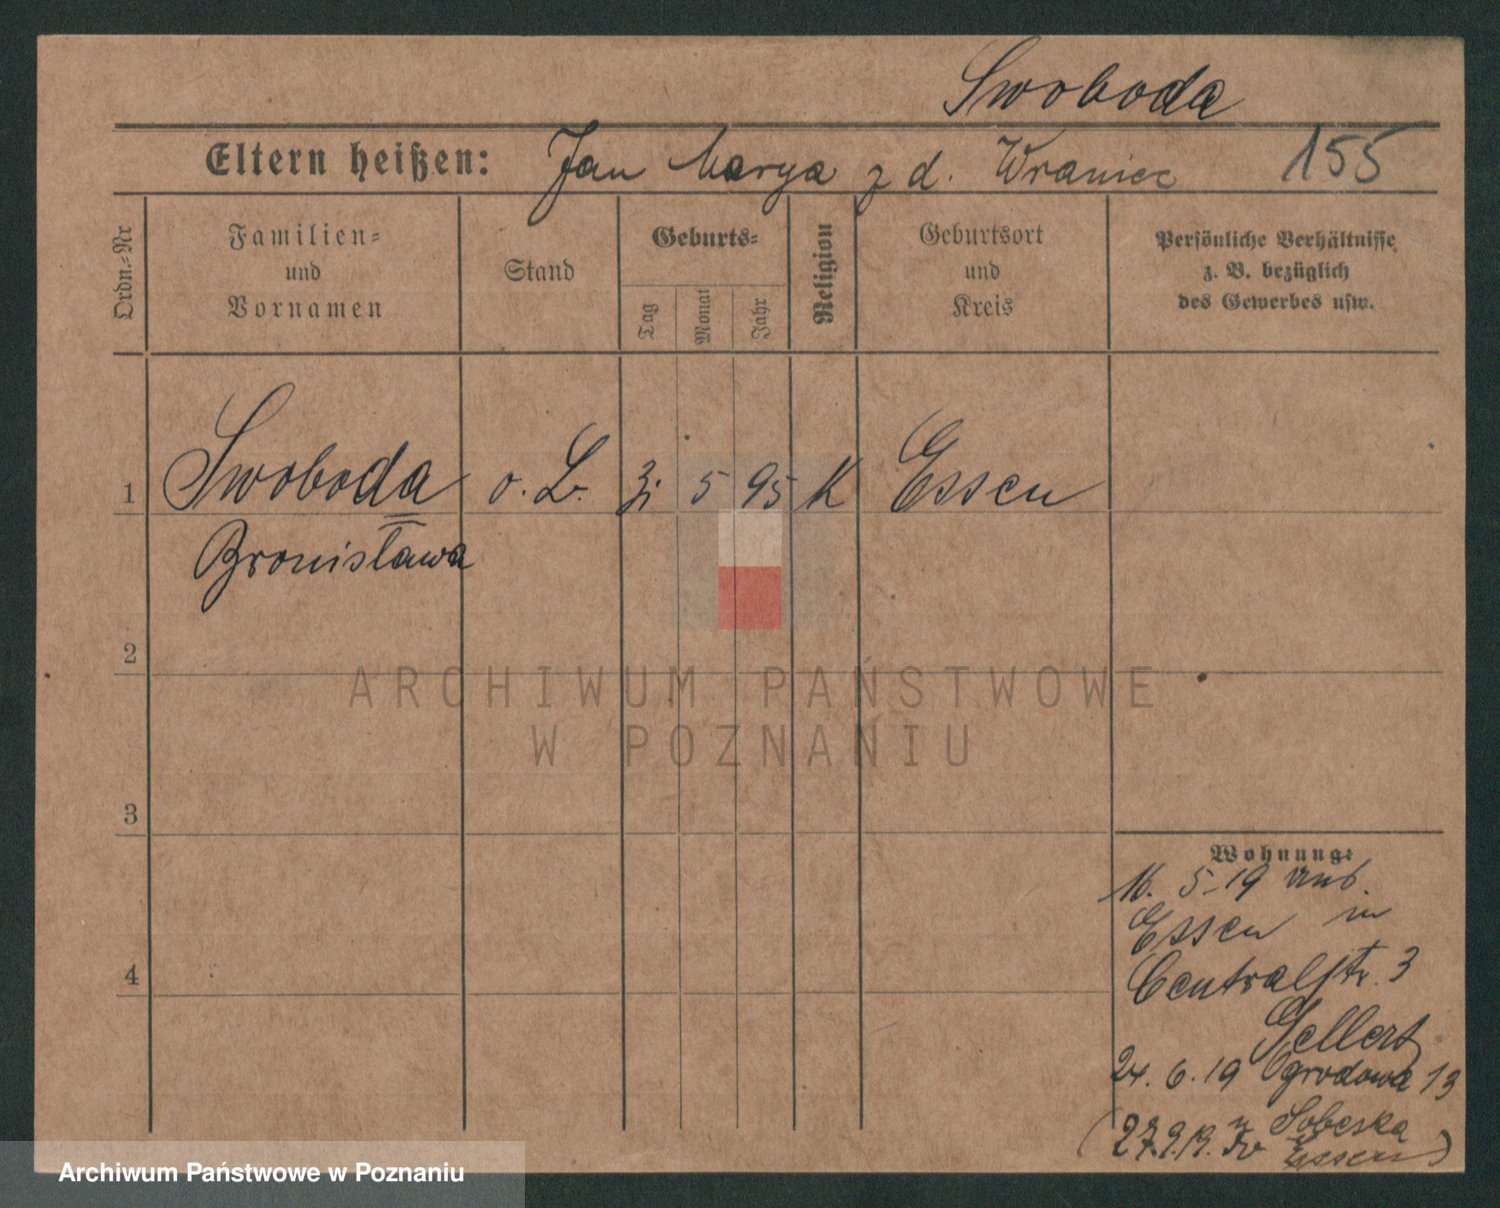 Swoboda
Eltern heißen: Jan Marya z d. Wraniec 155
Ordn.=Nr
Familien=
und
Vornamen
Stand
Geburts=
Tag
Monat
Jahr
Religion
Geburtsort
und
Kreis
Persönliche Verhältnisse
z. B. bezüglich
des Gewerbes usw.
1 Swoboda o. B. 5 95 K Essen
Bronisława
2
3
4
ARCHIWUM PAŃSTWOWE
W POZNANIU
Wohnung:
16. 5-19
Essen in
Centralstr. 3
Gellert
24. 6. 19 Ogrodowa 13
(27.9.19. Sobeska
Essen)
Archiwum Państwowe w Poznaniu